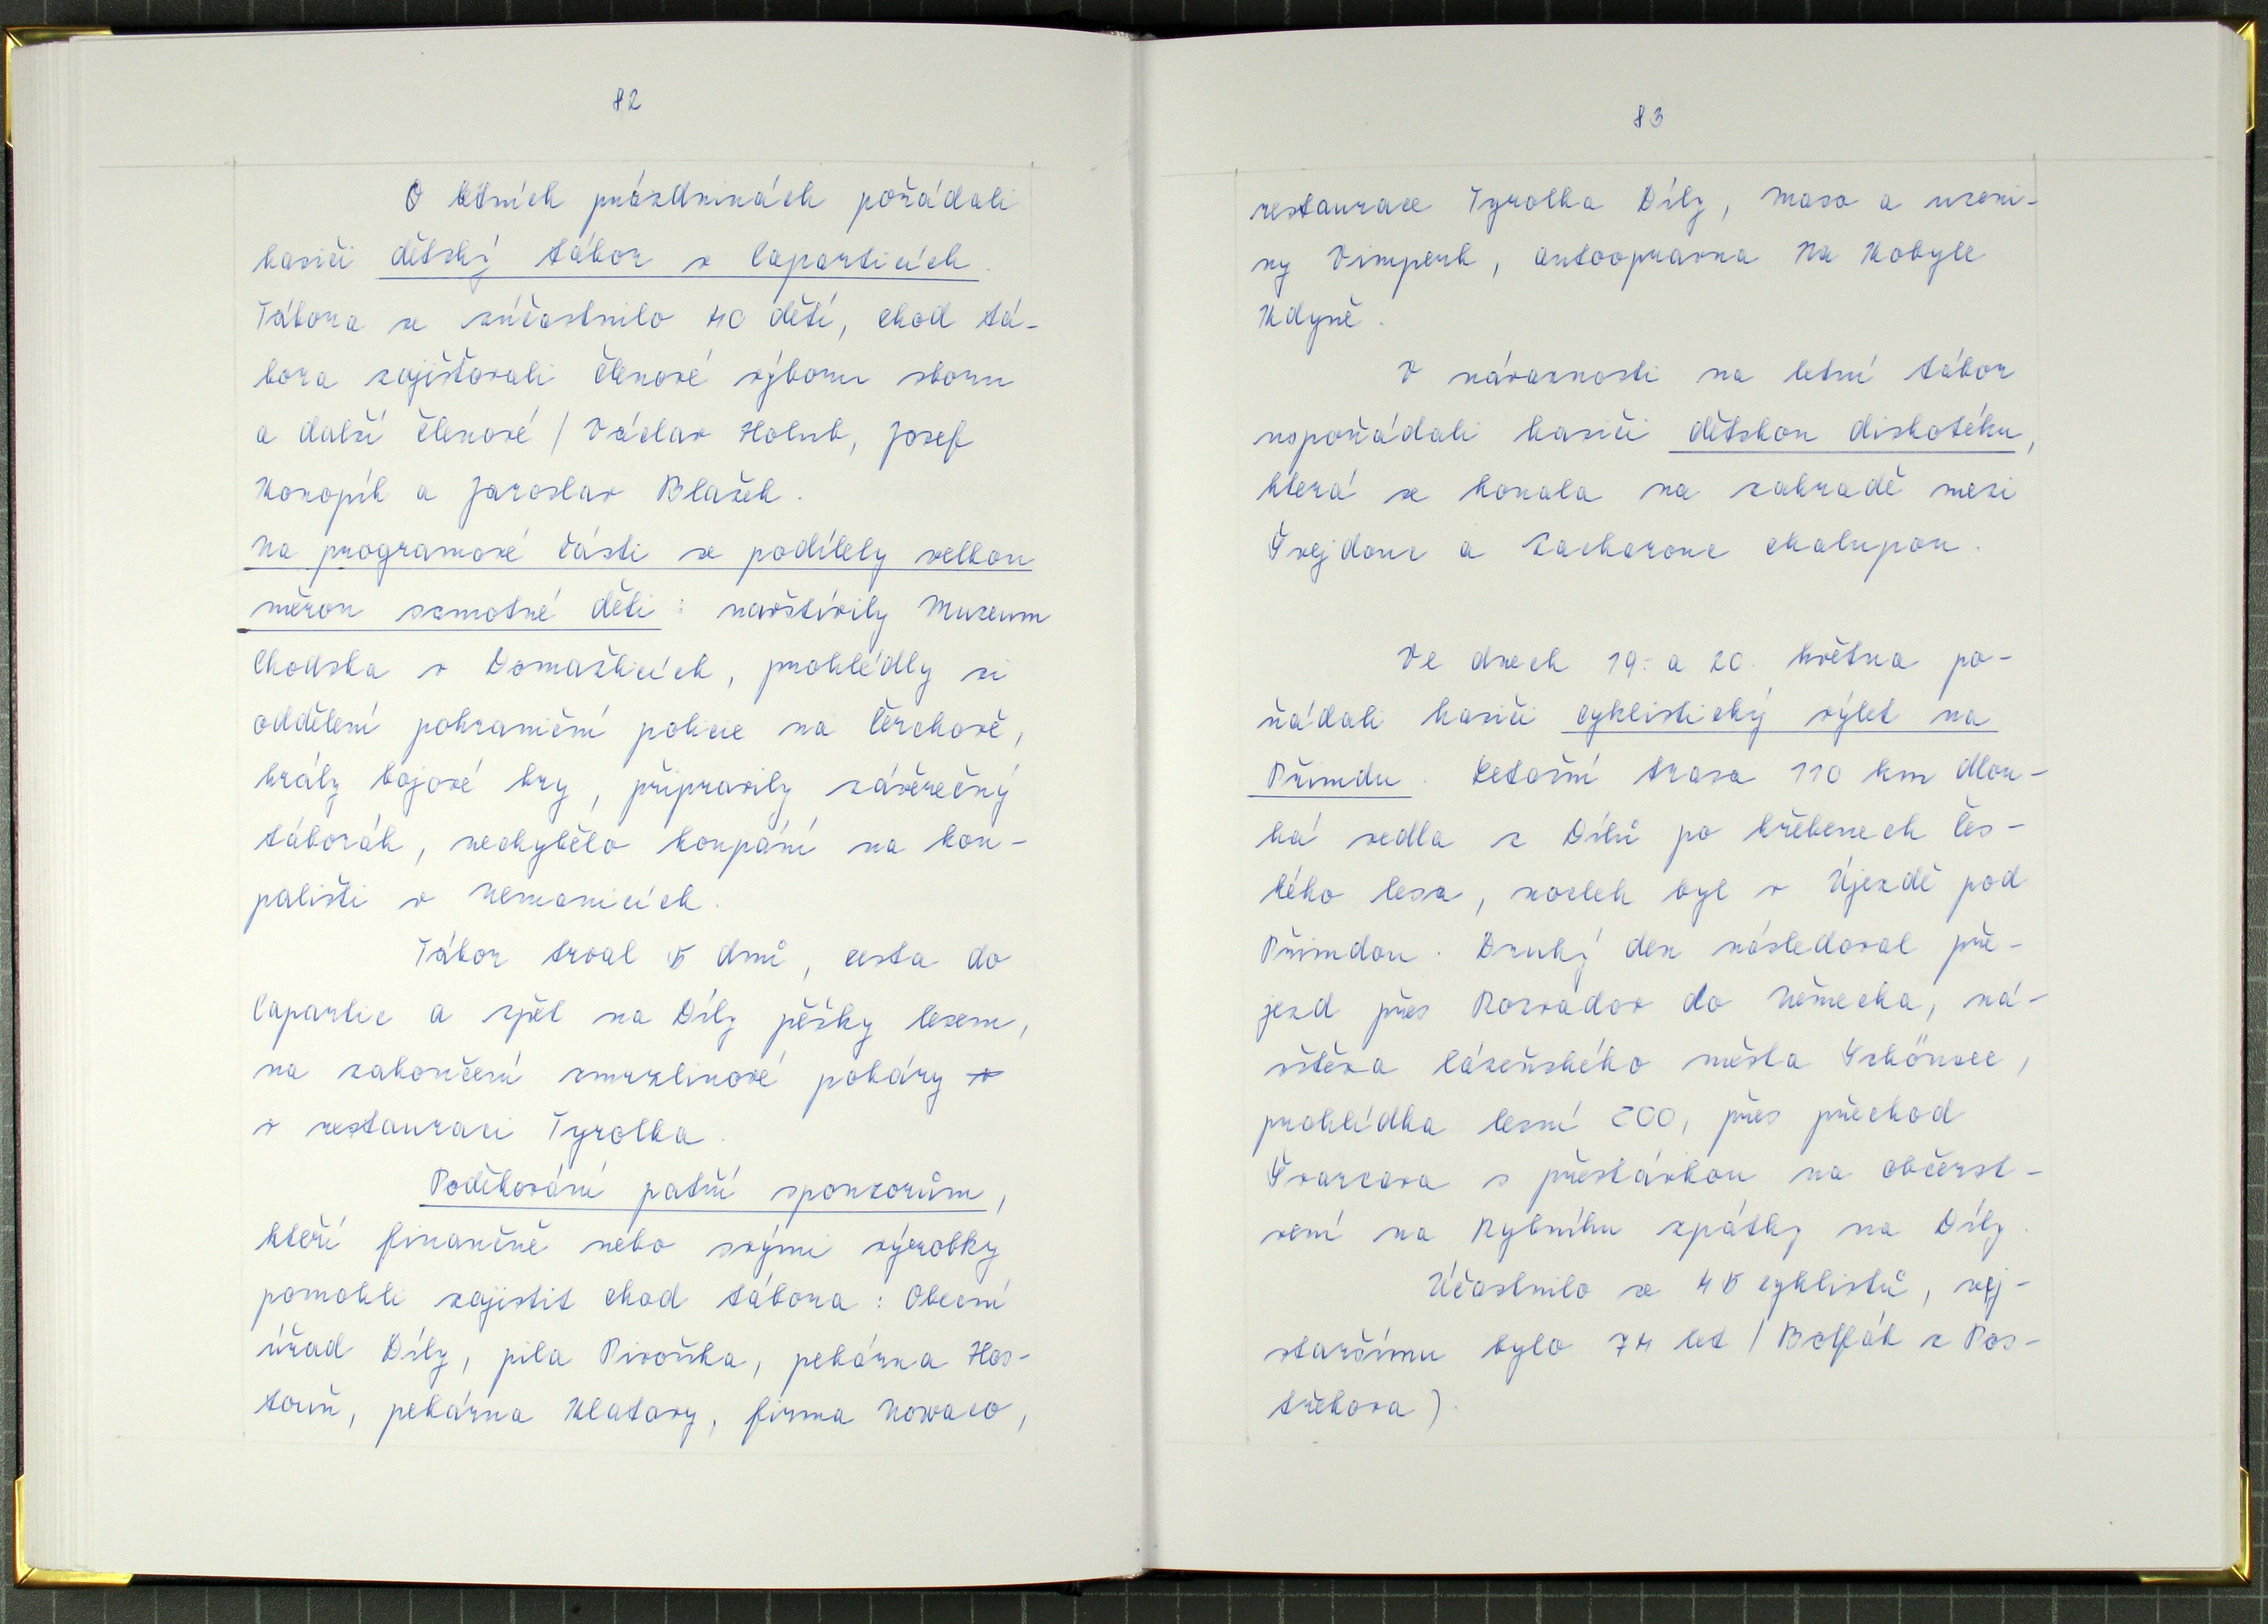 82
O letních prázdninách pořádali
hasiči dětský tábor v Caparticích.
Tábora se zúčastnilo 40 dětí, chod tá-
bora zajišťovali členové výboru sboru
a další členové / Václav Holub, Josef
Konopík a Jaroslav Blažek.
Na programové části se podílely velkou
měrou samotné děti: navštívily Muzeum
Chodska v Domažlicích, prohlédly si
oddělení pohraniční policie na Čerchově,
hrály bojové hry, připravily závěrečný
táborák, nechybělo koupání na kou-
pališti v Nemanicích.
Tábor trval 5 dnů, cesta do
Capartic a zpět na Díly pěšky lesem,
na zakončení zmrzlinové poháry v
v restauraci Tyrolka.
Poděkování patří sponzorům,
kteří finančně nebo svými výrobky
pomohli zajistit chod tábora: Obecní
úřad Díly, pila Pivoňka, pekárna Hos-
touň, pekárna Klatovy, firma Nowaco,
83
restaurace Tyrolka Díly, Maso a uzeni-
ny Vimperk, autoopravna Na Kobyle
Kdyně.
V návaznosti na letní tábor
uspořádali hasiči dětskou diskotéku,
která se konala na zahradě mezi
Švejdouc a Zacharouc chalupou.
Ve dnech 19. a 20. května po-
řádali hasiči cyklistický výlet na
Přimdu. Letošní trasa 110 km dlou-
há vedla z Dílů po hřebenech Čes-
kého lesa, nocleh byl v Újezdě pod
Přimdou. Druhý den následoval pře-
jezd přes Rozvadov do Německa, ná-
vštěva lázeňského města Schönsee,
prohlídka lesní ZOO, přes přechod
Švarcava s přestávkou na občerst-
vení na Rybníku zpátky na Díly.
Účastnilo se 45 cyklistů, nej-
staršímu bylo 74 let / Bolfík z Pos-
třekova).